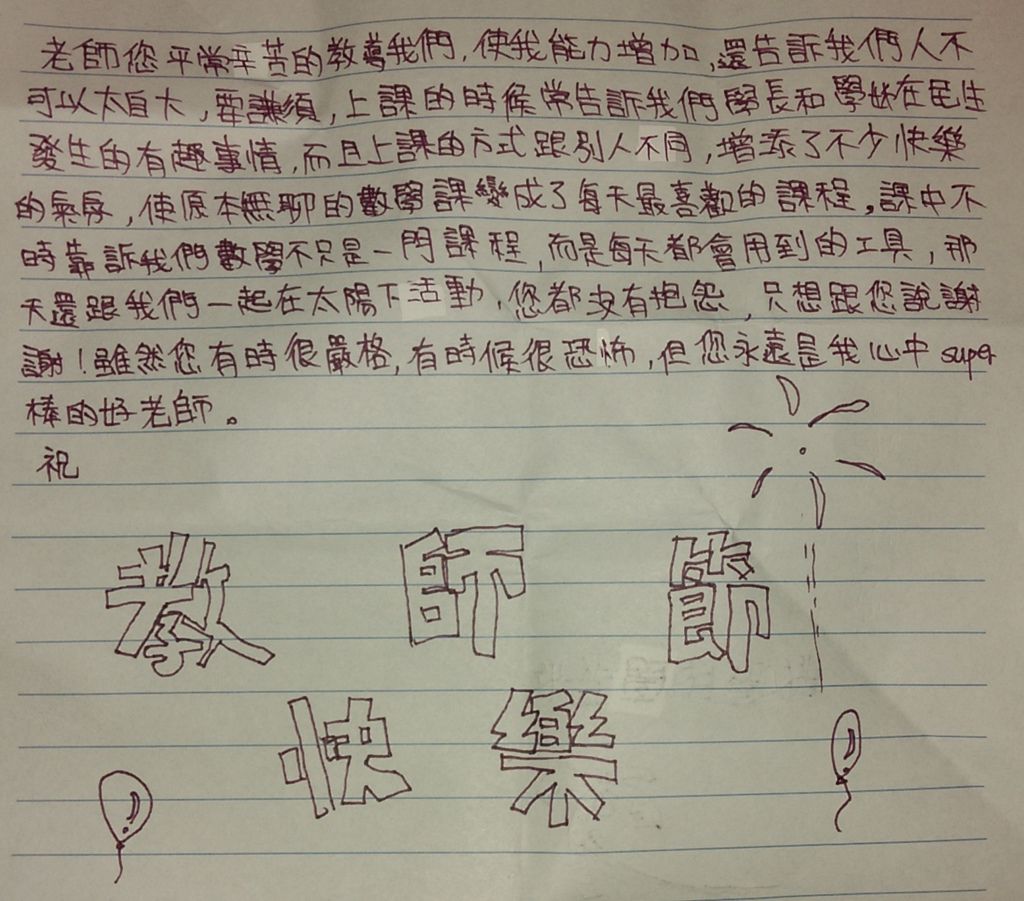 老師您平常辛苦的教導我們,使我能力增加,還告訴我們人不
可以太自大,要謙須,上課的時候常告訴我們學長和學姊在民生
發生的有趣事情,而且上課的方式跟別人不同,增添了不少快樂
的氣氛,使原本無聊的數學課變成了每天最喜歡的課程。課中不
時靠訴我們數學不只是一門課程,而是每天都會用到的工具,那
天還跟我們一起在太陽下活動,您都沒有抱怨,只想跟您說謝
謝!雖然您有時很嚴格,有時候很恐怖,但您永遠是我心中super
棒的好老師。
祝
教師節
快樂